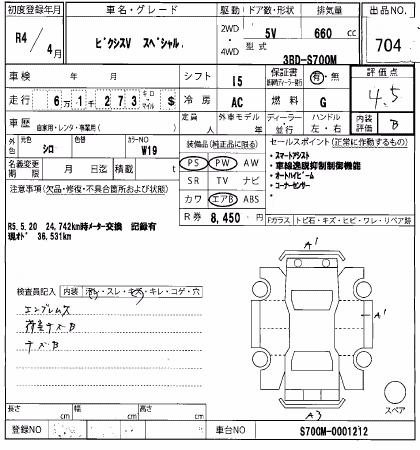 初度登録年月
車名・グレード
駆動
ドア数・形状
排気量
出品NO.
R4
4月
ピクシスV スペシャル
2WD
4WD
5V
660 cc
型式
3BD-S700M
704
車検
年
月
シフト
I5
保証書
有・無
評価点
走行
6万1千273
キロ
マイル
$
冷房
AC
燃料
G
4.5
車歴
自家用・レンタ・事業用( )
定員
人
外車モデル
年
ディーラー
並行
ハンドル
左・右
内装
評価
B
外色
シロ
カラーNO
W19
装備品(純正品に限る)
セールスポイント(正常に作動するもの)
名義変更
期限
月
日迄
積載
t
PS PW AW
SR TV ナビ
カワ エアB ABS
・スマートアシスト
・車線逸脱抑制制御機能
・オートハイビーム
・コーナーセンサー
注意事項(欠品・修復・不具合箇所および状態)
R5.5.20 24,742km時メーター交換 記録有
現オド 36,531km
R券
8,450
円
Fガラス
トビ石・キズ・ヒビ・ワレ・リペア跡
検査員記入
内装
汚レ・スレ・キズ・キレ・コゲ・穴
エンブレムヌケ
荷室キズB
キズB
A1
A1
A3
スペア
長さ
cm
幅
cm
高さ
cm
登録NO
車台NO
S700M-0001212